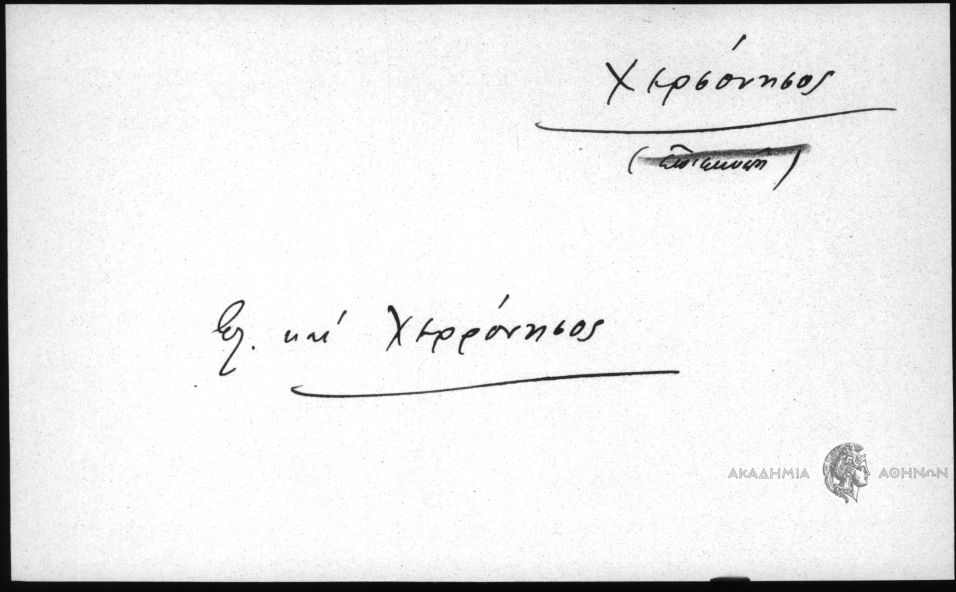 Χερσόνησος
βλ. και Χερρόνησος
ΑΚΑΔΗΜΙΑ ΑΘΗΝΩΝ